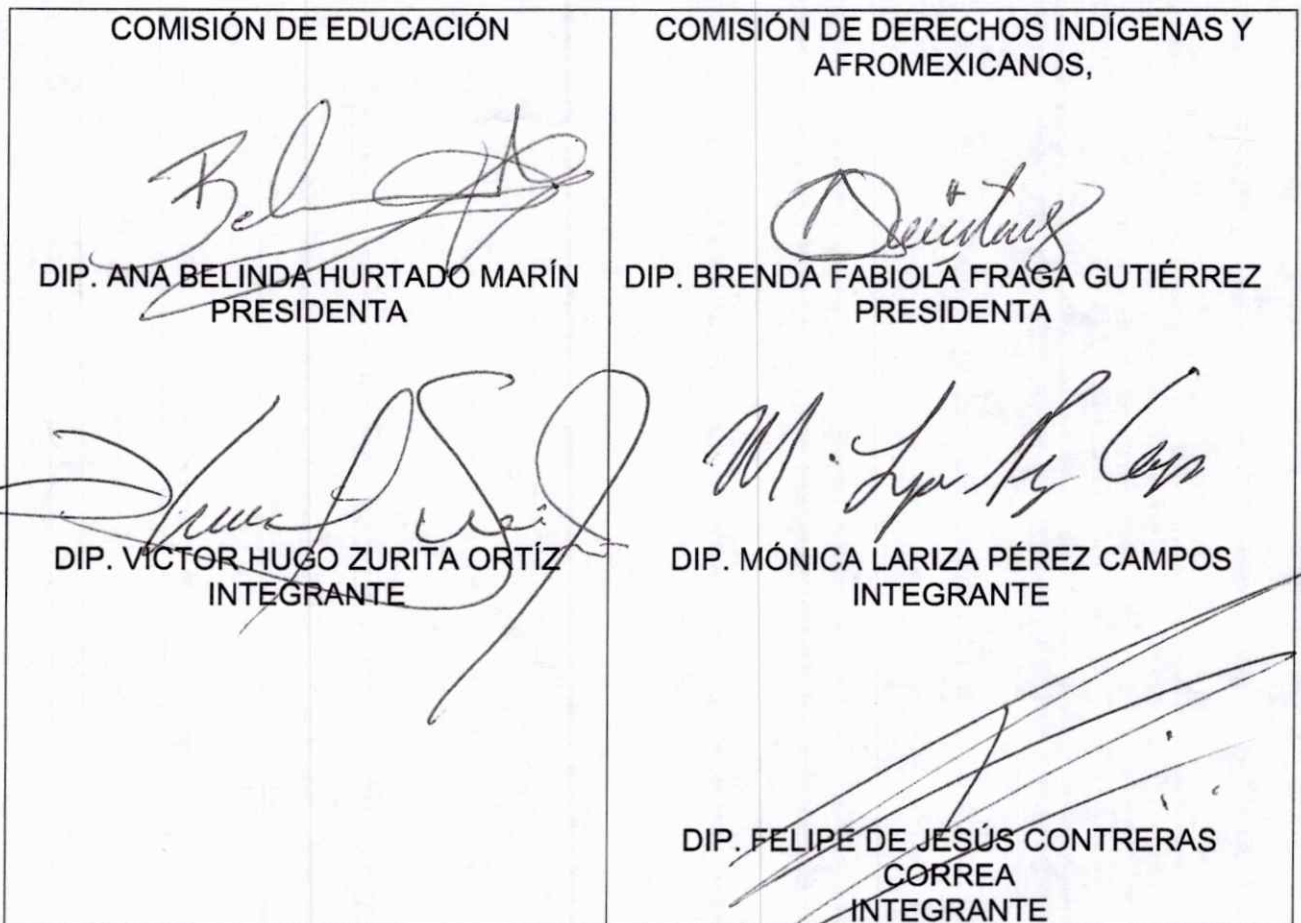 COMISIÓN DE EDUCACIÓN
DIP. ANA BELINDA HURTADO MARÍN
PRESIDENTA
DIP. VICTOR HUGO ZURITA ORTÍZ
INTEGRANTE
COMISIÓN DE DERECHOS INDÍGENAS Y
AFROMEXICANOS,
DIP. BRENDA FABIOLA FRAGA GUTIÉRREZ
PRESIDENTA
DIP. MÓNICA LARIZA PÉREZ CAMPOS
INTEGRANTE
DIP. FELIPE DE JESÚS CONTRERAS
CORREA
INTEGRANTE